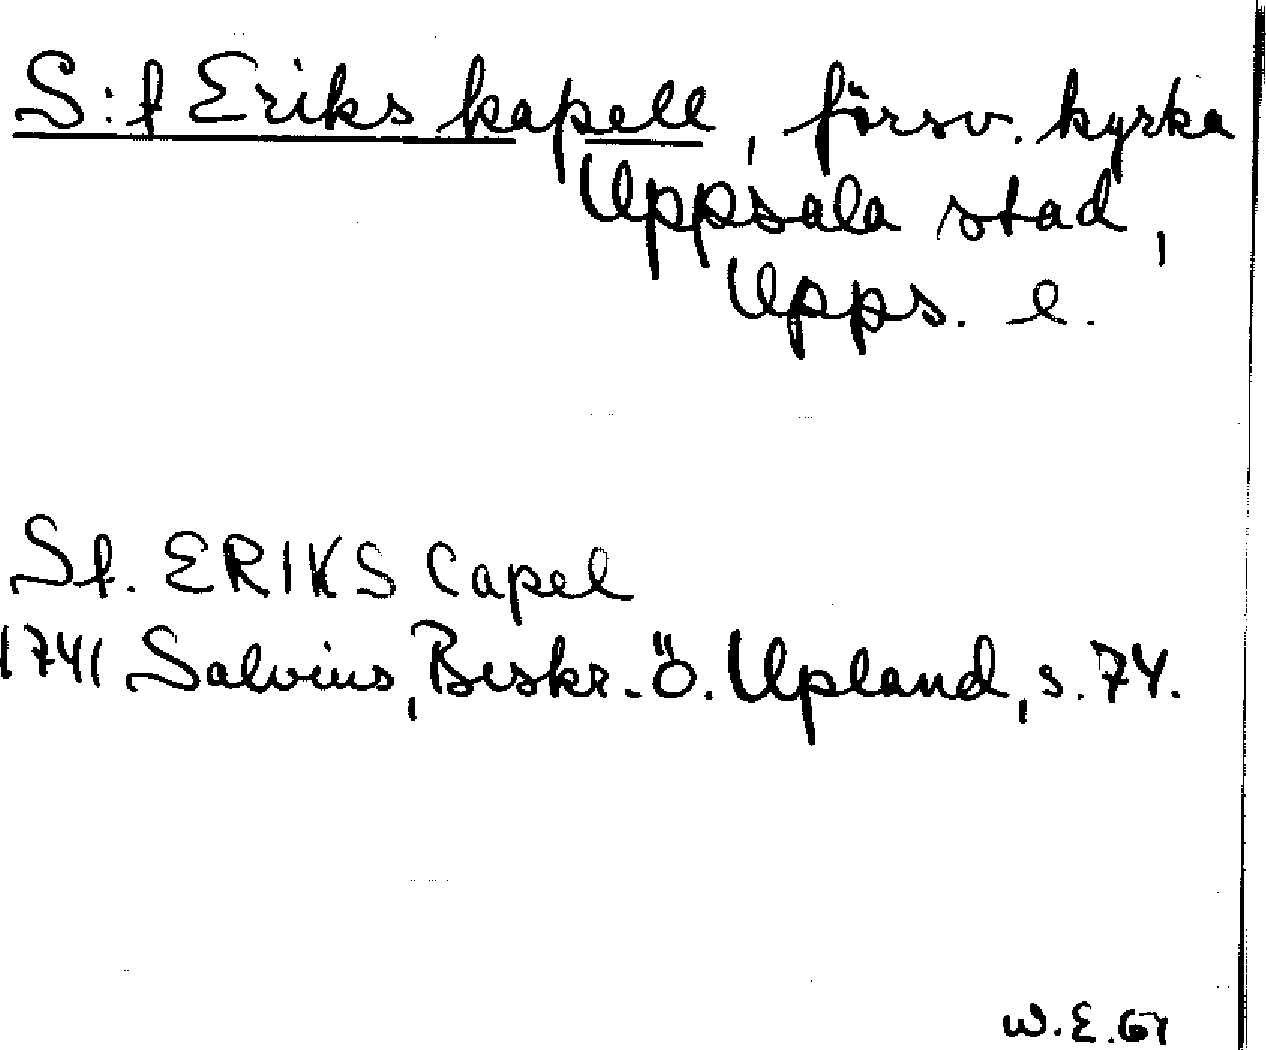 S:t Eriks kapell, försv. kyrka
Uppsala stad,
Upps. l.
St. ERIKS Capel
1741 Salvius, Beskr. ö. Upland, s. 74.
W.E. 67